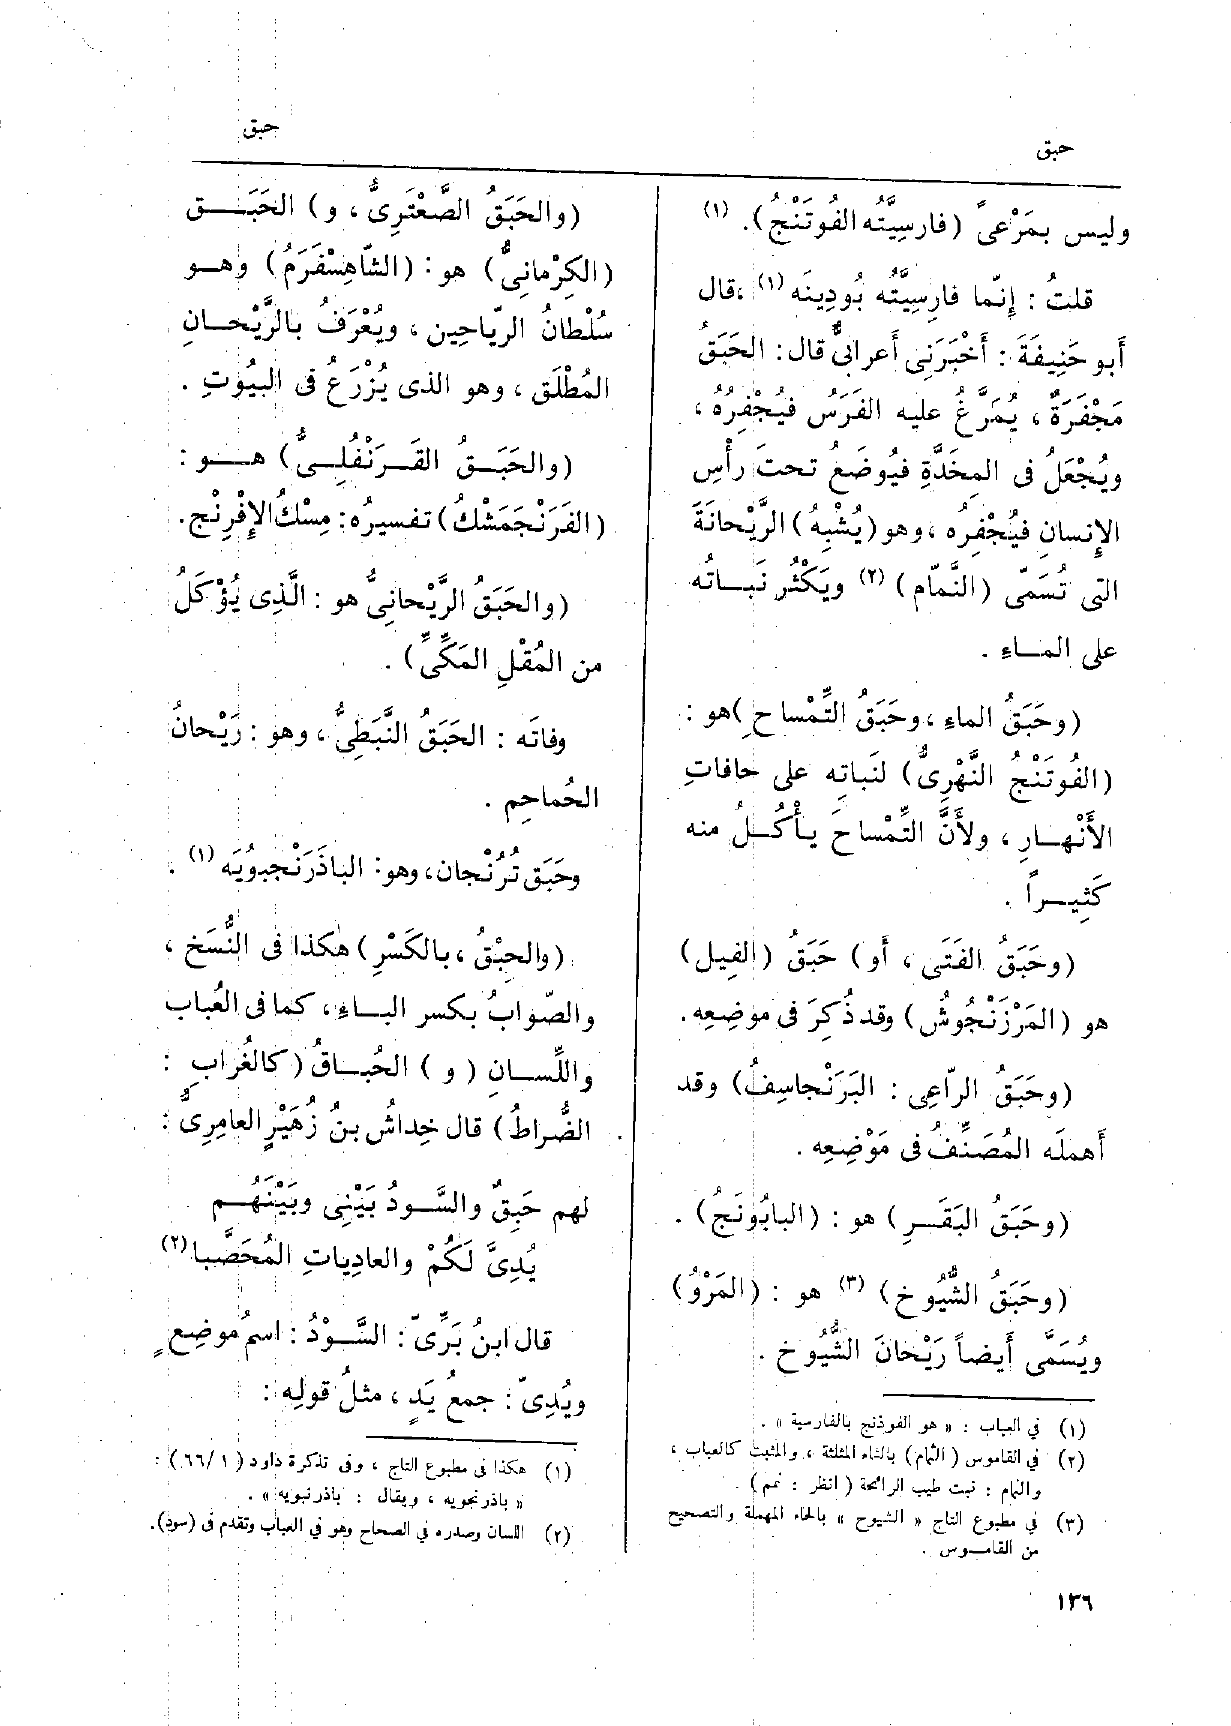 حبق
حبق
وليس بمَرْعىً (فارسِيَّتُه الفُوتَنْجُ). (١)
قلتُ : إنّما فارِسِيَّتُه بُودِينَه (١) ، قال
أبو حَنِيفَةَ : أَخْبَرَنِى أعرابىٌّ قال : الحَبَقُ
مَجْفَرَةٌ ، يُمَرَّغُ عليه الفَرَسُ فيُجْفِرُهُ ،
ويُجْعَلُ فى المِخَدَّةِ فيُوضَعُ تحتَ رأْسِ
الإنسانِ فيُجْفِرُه ، وهو (يُشْبِهُ) الرَّيْحانَةَ
التى تُسَمّى (النَّمّام) (٢) ويَكْثُر نَباتُه
على الماءِ .
(وحَبَقُ الماءِ ، وحَبَقُ التِّمْساحِ) هو :
(الفُوتَنْجُ النَّهْرِىُّ) لنَباتِه على حافاتِ
الأَنْهارِ ، ولأَنَّ التِّمْساحَ يأْكُلُ منه
كَثِيراً .
(وحَبَقُ الفَتَى ، أو) حَبَقُ (الفِيل)
هو (المَرْزَنْجُوشُ) وقد ذُكِرَ فى موضِعِه .
(وحَبَقُ الرّاعِى : البَرَنْجاسِفُ) وقد
أهملَه المُصَنِّفُ فى مَوْضِعِه .
(وحَبَقُ البَقَرِ) هو : (البابُونَجُ) .
(وحَبَقُ الشُّيُوخِ) (٣) هو : (المَرْوُ)
ويُسَمَّى أيضاً رَيْحانَ الشُّيُوخِ .
(١) في العباب : « هو الفوذنج بالفارسية » .
(٢) في القاموس (الثّمام) بالثاء المثلثة ، والمثبت كالعباب ،
والنمام : نبت طيب الرائحة (انظر : نمم) .
(٣) في مطبوع التاج « الشيوح » بالحاء المهملة والتصحيح
من القاموس .
(والحَبَقُ الصَّعْتَرِىُّ ، و) الحَبَقُ
(الكِرْمانِىُّ) هو : (الشّاهِسْفَرَمُ) وهو
سُلْطانُ الرّياحِينِ ، ويُعْرَفُ بالرَّيْحانِ
المُطْلَقِ ، وهو الذى يُزْرَعُ فى البيُوتِ .
(والحَبَقُ القَرَنْفُلِىُّ) هو :
(الفَرَنْجَمَشْكُ) تفسيرُه : مِسْكُ الإِفْرِنْجِ .
(والحَبَقُ الرَّيْحانِىُّ هو : الَّذِى يُؤْكَلُ
من المُقْلِ المَكِّىِّ) .
وفاتَه : الحَبَقُ النَّبَطِىُّ ، وهو : رَيْحانُ
الحُماحِمِ .
وحَبَق تُرُنْجان ، وهو : الباذَرَنْجبُويَه (١) .
(والحِبْقُ ، بالكَسْرِ) هكذا فى النُّسَخِ ،
والصّوابُ بكسرِ الباءِ ، كما فى العُباب
واللِّسانِ (و) الحُباقُ (كالغُرابِ :
الضُّراطُ) قال خِداشُ بنُ زُهَيْرٍ العامِرِىُّ :
لهم حَبِقٌ والسَّودُ بَيْنِى وبَيْنَهُم
يُدِىَّ لَكُمْ والعادِياتِ المُحَصَّبا (٢)
قال ابنُ بَرِّىّ : السَّوْدُ : اسمُ موضِعٍ
ويُدِىّ : جمعُ يَدٍ ، مثلُ قولِه :
(١) هكذا فى مطبوع التاج ، وفى تذكرة داود (١/ ٦٦) :
« باذرنجويه ، ويقال : باذرنبويه » .
(٢) اللسان وصدره في الصحاح وهو في العباب وتقدم فى (سود) .
١٣٦